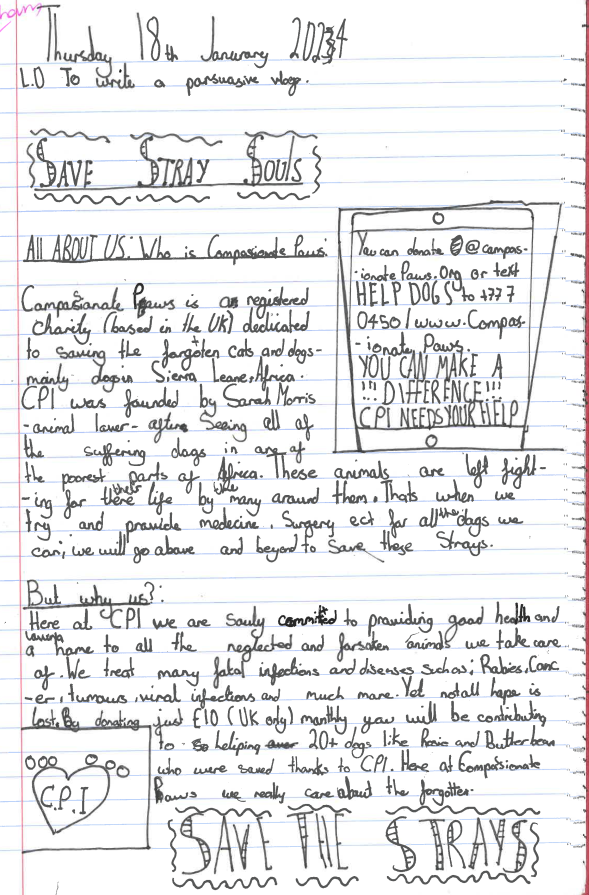 Thursday 18th Janurary 2024
L.O To write a parsuasive vlog.
SAVE STRAY SOULS
All ABOUT US: Who is Compassionate Paws:
You can donate @compas-
-ionate Paws.Org or text
HELP DOGS to +777
0450/www.Compas-
-ionate Paws.
YOU CAN MAKE A
!!! DIFFERENCE!!!
CPI NEEDS YOUR HELP
Compassionate Paws is a registered
charity (based in the UK) dedicated
to saving the forgotten cats and dogs-
mainly dogs in Sierra Leane, Africa.
CPI was founded by Sarah Morris
-animal laver- after Seeing all of
the suffering dogs in one of
the poorest parts of Africa. These animals are left fight-
-ing for their life by the many around them. Thats when we
try and prawide medecine, Surgery ect for all the dogs we
can; we will go above and beyond to Save these Strays.
But why us?:
Here at CPI we are sauly committed to praviding good health and
a home to all the neglected and forsaken animals we take care
of. We treat many fatal infections and diseases such as; Rabies, Canc
-er, tumours, viral infections and much more. Yet not all hope is
lost. By donating just £10 (UK only) monthly you will be contributing
to heliping 20+ dogs like Rosie and Butterbean
who were saved thanks to CPI. Here at Compassionate
Paws we really care about the forgotten.
C.P.I
SAVE THE STRAYS